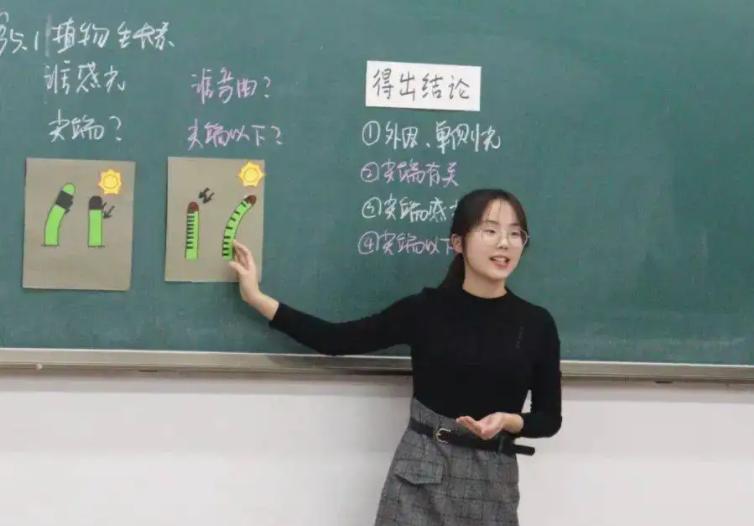 §5.1 植物生长素
谁感光
尖端?
谁弯曲?
尖端以下?
得出结论
①外因、单侧光
②尖端有关
③尖端感光
④尖端以下